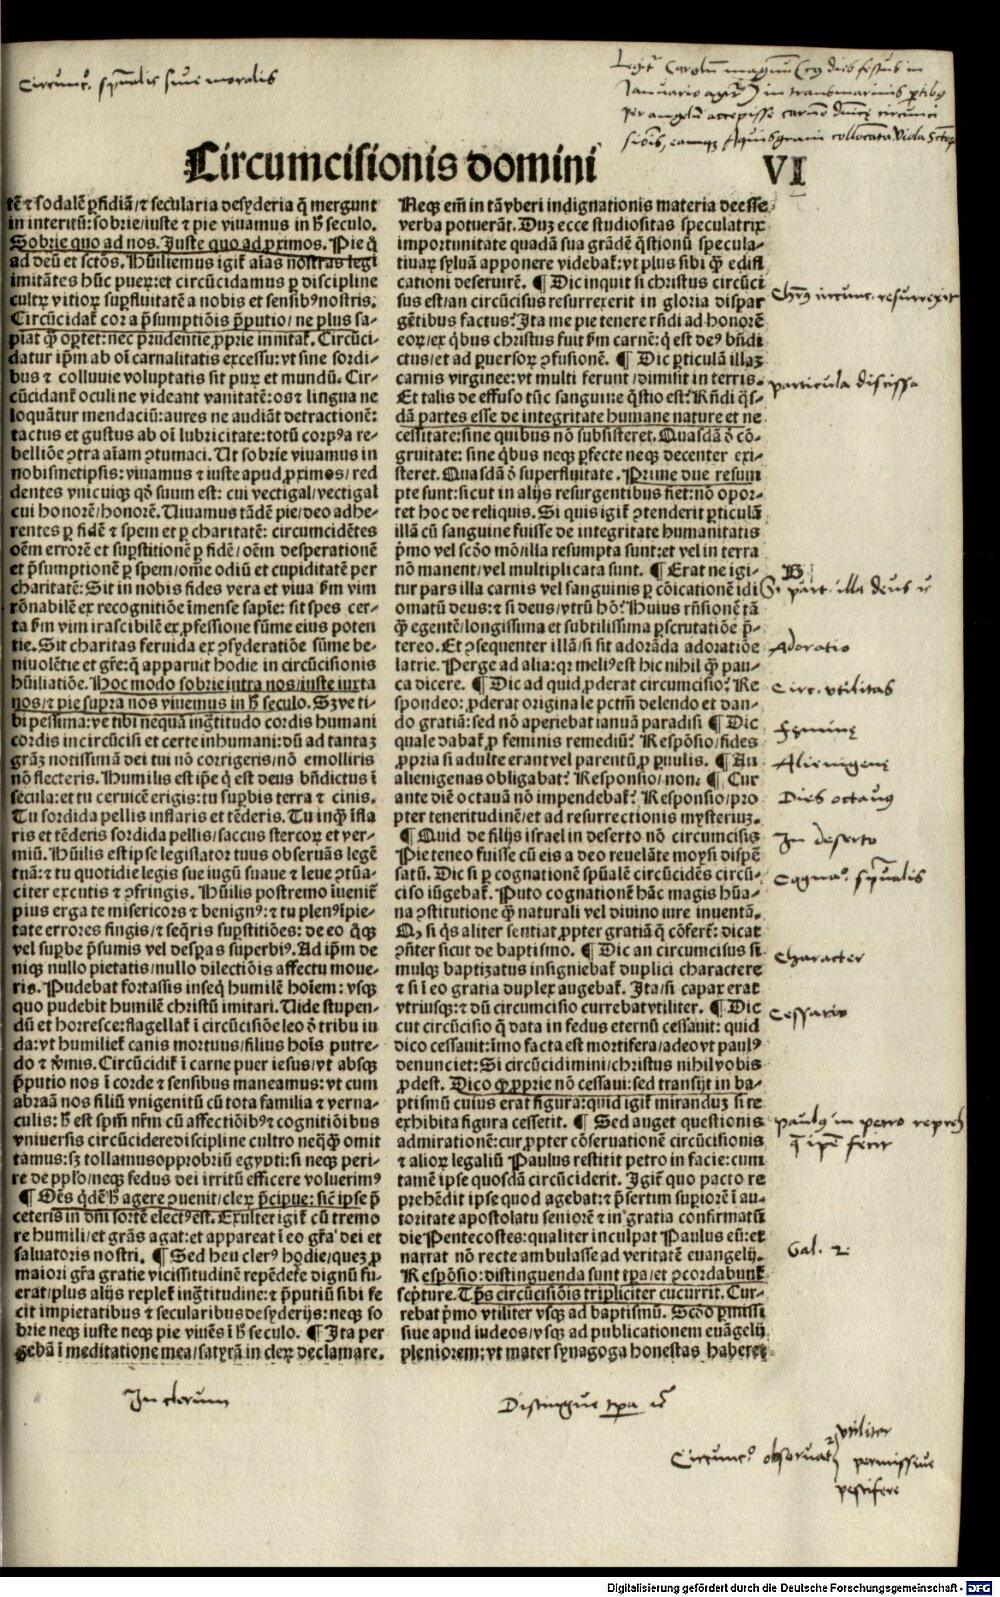 Circumc͛. sp̄ualis siue moralis
Legit͛ Carolū magnū (cuius dies festus in
Ianuario agit͛) in transmarinis p̄tibus
per angelū accepisse carnē dn̄icę circumci
sionis, eamque Aquisgrani collocatā
Circumcisionis domini
VI
tē ⁊ sodalē ꝑfidiā/⁊ secularia desyderia q̄ mergunt
in interitū: sobrie/iuste ⁊ pie viuamus in h̄ seculo.
Sobrie quo ad nos. Iuste quo ad ꝓximos. Pie q̊
ad deū et sctōs. Hūiliemus igit̄ aīas nostras legi
imitātes hūc pueꝝ: et circūcidamus ꝑ discipline
cultꝝ vitioꝝ suꝑfluitatē a nobis et sensibꝰ nostris.
Circūcidat̄ cor a p̄sumptiōis p̄putio/ne plus sa-
piat q̄̊ oꝑtet: nec prudentie ꝓprie innitat̄. Circūci-
datur ip̄m ab oī carnalitatis excessu: vt sine sordi-
bus ⁊ colluuie voluptatis sit puꝝ et mundū. Cir-
cūcidant̄ oculi ne videant vanitatē: os ⁊ lingua ne
loquātur mendaciū: aures ne audiāt detractionē:
tactus et gustus ab oī lubricitate: totū corpꝰ a re-
belliōe ꝯtra aīam ꝯtumaci. Ut sobrie viuamus in
nobismetipsis: viuamus ⁊ iuste apud ꝓximos/red
dentes vnicuiqꝫ qd̄ suum est: cui vectigal/vectigal
cui honorē/honorē. Uiuamus tādē pie/deo adhe-
rentes ꝑ fidē ⁊ spem et ꝑ charitatē: circumcidētes
oēm errorē et suꝑstitionē ꝑ fidē/oēm desperationē
et p̄sumptionē ꝑ spem/omē odiū et cupiditatē per
charitatē: Sit in nobis fides vera et viua ẜm vim
rōnabilē ex recognitiōe īmense sapīe: sit spes cer-
ta ẜm vim irascibilē ex ꝓfessione sūme eius poten
tie. Sit charitas feruida ex ꝯsyderatiōe sūme be-
niuolētie et gr̄e: q̄ apparuit hodie in circūcisionis
hūiliatiōe. Hoc modo sobrie intra nos/iuste iuxta
nos/⁊ pie supra nos viuemus in h̄ seculo. Sꝫ ve ti-
bi pessima: ve tibi neq̄uā ingr̄titudo cordis humani
cordis incircūcisi et certe inhumani: dū ad tantaꝫ
grāꝫ notissimā dei tui nō corrigeris/nō emolliris
nō flecteris. Humilis est ip̄e q̄ est deus bn̄dictus ī
secula: et tu ceruicē erigis: tu suꝑbis terra ⁊ cinis.
Tu sordida pellis inflaris et tēderis. Tu inq̄̊ īfla
ris et tēderis sordida pellis/saccus stercoꝝ et ver-
miū. Hūilis est ipse legislator tuus obseruās legē
tuā: ⁊ tu quotidie legis sue iugū suaue ⁊ leue ꝯtūa-
citer excutis ⁊ ꝯfringis. Hūilis postremo īuenit̄
pius erga te misericors ⁊ benignꝰ: ⁊ tu plenꝰ īpie-
tate errores fingis/⁊ seq̄ris suꝑstitiōes: de eo q̊qꝫ
vel suꝑbe p̄sumis vel desꝑas superbiꝰ. Ad ip̄m de
niqꝫ nullo pietatis/nullo dilectiōis affectu moue-
ris. Pudebat fortassis inseq̄ humilē hoīem: vsqꝫ
quo pudebit humilē christū imitari. Uide stupen-
dū et horresce: flagellat̄ ī circūcisiōe leo d̄ tribu iu
da: vt humiliet̄ canis mortuus/filius hoīs putre-
do ⁊ v̓mis. Circūcidit̄ ī carne puer iesus/vt absqꝫ
p̄putio nos ī corde ⁊ sensibus maneamus: vt cum
abraā nos filiū vnigenitū cū tota familia ⁊ verna-
culis: h̄ est spm̄ nrm̄ cū affectiōibꝰ ⁊ cognitiōibus
vniuersis circūcidere discipline cultro neq̄q̄̊ omit
tamus: sꝫ tollamus opprobriū egypti: si neqꝫ peri-
re de ppl̓o/neqꝫ fedus dei irritū efficere voluerimꝰ
¶ Oēs q̓dē h̄ agere ꝯuenit/cleꝝ p̄cipue: sic̄ ipse p̄
ceteris in dn̄i sortē electꝰ est. Exultet igit̄ cū tremo
re humili/et grās agat: et appareat ī eo gr̄a dei et
saluatoris nostri. ¶ Sed heu clerꝰ hodie/quez ꝓ
maiori gr̄a gratie vicissitudinē repēdere dignū fu-
erat/plus alijs replet̄ ingr̄titudine: ⁊ p̄putiū sibi fe
cit impietatibus ⁊ secularibus desyderijs: neqꝫ so
brie neqꝫ iuste neqꝫ pie viuēs ī h̄ seculo. ¶ Ita per
gebā ī meditatione mea/satyrā in cleꝝ declamare.
In clerum
Neqꝫ em̄ in tā vberi indignationis materia deesse
verba potuerāt. Duꝫ ecce studiositas speculatrix
importunitate quadā sua grādē q̄stionū specula-
tiuaꝝ syluā apponere videbat̄: vt plus sibi q̄̊ edifi
cationi deseruirē. ¶ Dic inquit si christus circūci
sus est/an circūcisus resurrexerit in gloria dispar
gētibus factus? Ita me pie tenere rn̄di ad honorē
eoꝝ/ex q̓bus christus fuit ẜm carnē: q̄ est deꝰ bn̄di
ctus/et ad ꝑuersoꝝ ꝯfusionē. ¶ Dic ꝑticulā illaꝫ
carnis virginee: vt multi ferunt/dimisit in terris.
Et talis de effuso tūc sanguine q̄stio est? Rn̄di q̓s-
dā partes esse de integritate humane nature et ne
cessitate: sine quibus nō subsisteret. Quasdā d̄ cō-
gruitate: sine q̓bus neqꝫ ꝑfecte neqꝫ decenter exi-
steret. Quasdā d̄ superfluitate. Prime due resum
pte sunt: sicut in alijs resurgentibus fiet: nō opor-
tet hoc de reliquis. Si quis igit̄ ꝯtenderit ꝑticulā
illā cū sanguine fuisse de integritate humanitatis
p̓mo vel scd̓o mō/illa resumpta sunt: et vel in terra
nō manent/vel multiplicata sunt. ¶ Erat ne igi-
tur pars illa carnis vel sanguinis ꝑ cōicationē idi
omatū deus: ⁊ si deus/vtrū hō? Huius rn̄sionē tā
q̄̊ egentē/longissima et subtilissima ꝑscrutatiōe p̄-
tereo. Et ꝯsequenter illā/si sit adorāda adoratiōe
latrie. Perge ad alia: qꝛ meliꝰ est hic nihil q̄̊ pau-
ca dicere. ¶ Dic ad quid ꝓderat circumcisio? Re
spondeo: ꝓderat originale pctm̄ delendo et dan-
do gratiā: sed nō aperiebat ianuā paradisi ¶ Dic
quale dabat̄ ꝓ feminis remediū? Respōsio/fides
ꝓpria si adulte erant vel parentū ꝓ ꝑuulis. ¶ An
alienigenas obligabat? Responsio/non. ¶ Cur
ante diē octauā nō impendebat̄? Responsio/pro
pter teneritudinē/et ad resurrectionis mysteriuꝫ.
¶ Quid de filijs israel in deserto nō circumcisis
Pie teneo fuisse cū eis a deo reuelāte moysi dispē
satū. Dic si ꝑ cognationē spūalē circūcidēs circū-
ciso iūgebat̄. Puto cognationē hāc magis hūa-
na ꝯstitutione q̄̊ naturali vel diuino iure inuentā.
Qꝫ si q̓s aliter sentiat ꝓpter gratiā q̄ cōfert̄: dicat
ꝯn̄ter sicut de baptismo. ¶ Dic an circumcisus si
mulqꝫ baptizatus insigniebat̄ duplici charactere
⁊ si ī eo gratia duplex augebat̄. Ita/si capax erat
vtriusqꝫ: ⁊ dū circumcisio currebat vtiliter. ¶ Dic
cur circūcisio q̄ data in fedus eternū cessauit: quid
dico cessauit: īmo facta est mortifera/adeo vt paulꝰ
denunciet: Si circūcidimini/christus nihil vobis
ꝓdest. Dico ꝙ ꝓprie nō cessauit: sed transijt in ba-
ptismū cuius erat figura: quid igit̄ miranduꝫ si re
exhibita figura cesserit. ¶ Sed auget questionis
admirationē: cur ꝓpter cōseruationē circūcisionis
⁊ alioꝝ legaliū Paulus restitit petro in facie: cum
tamē ipse quosdā circūciderit. Igit̄ quo pacto re
prehēdit ipse quod agebat: ⁊ p̄sertim suꝑiorē ī au-
toritate apostolatu seniorē ⁊ in gratia confirmatū
die Pentecostes: qualiter inculpat Paulus eū: et
narrat nō recte ambulasse ad veritatē euangelij.
Respōsio: distinguenda sunt tꝑa/et ꝯcordabunt̄
scp̄ture. Tꝑs circūcisiōis tripliciter cucurrit. Cur-
rebat p̓mo vtiliter vsqꝫ ad baptismū. Scd̓o ꝑmissi
siue apud iudeos/vsqꝫ ad publicationem euāgelij
pleniorem: vt mater synagoga honestas haberet
Chr̄us circunc. resurrexit
particula discissa
Si part. illa deus ēt
Adoratio
Circ. vtilitas
Fęminę
Alienigenę
Dies octauus
In deserto
Cogna°. sp̄ualis
Character
Cessatio
paulus in petro repreh̄
q̄ ipse fecit
Gal. 2
Distingue tꝑa ⁊c̄
Circunc° obseruat̄
vtiliter
permissiue
pestifere
Digitalisierung gefördert durch die Deutsche Forschungsgemeinschaft - DFG